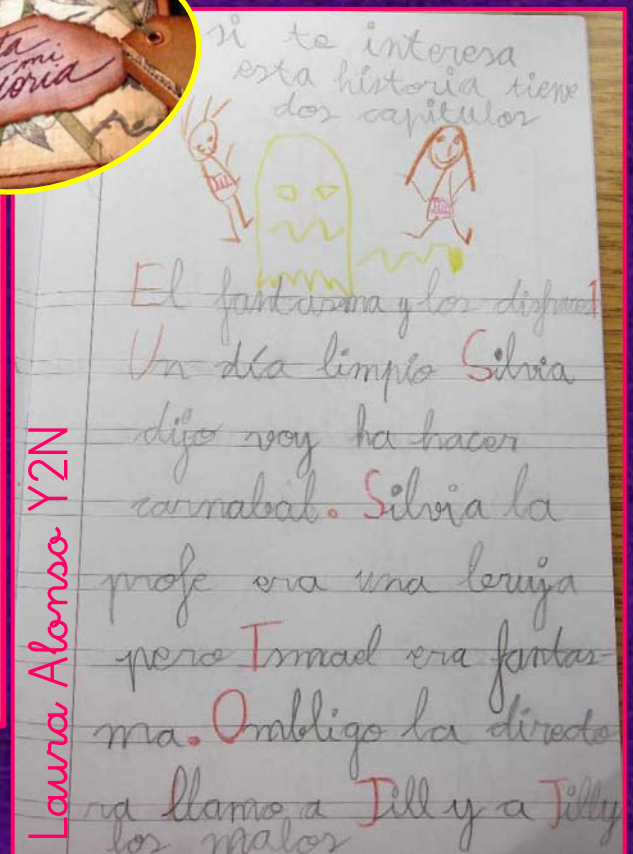 ta
mi
toria
si te interesa
esta historia tiene
dos capitulos
El fantasma y los disfraces 1
Un día limpio Silvia
dijo voy ha hacer
carnabal. Silvia la
profe era una bruja
pero Ismael era fantas-
ma. Ombligo la directo
ra llamo a Jill y a Jilly
los malos
Laura Alonso Y2N